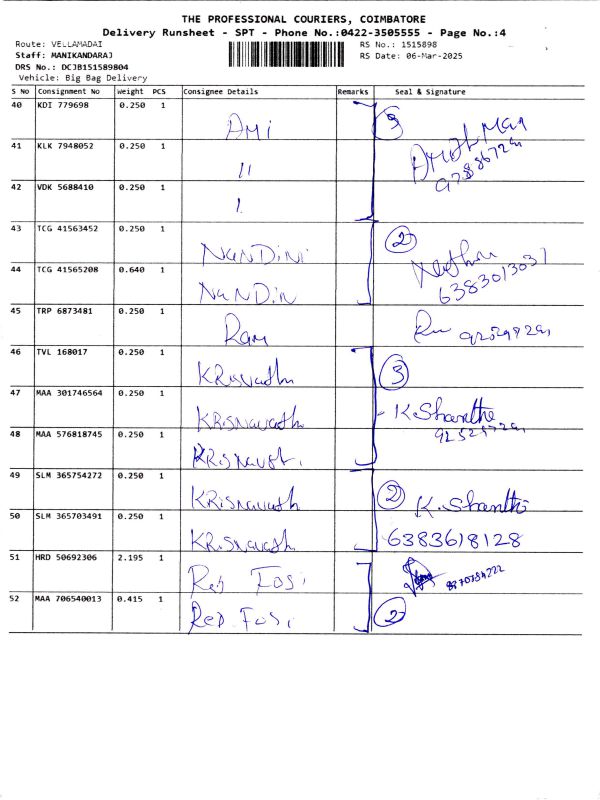 THE PROFESSIONAL COURIERS, COIMBATORE
Delivery Runsheet - SPT - Phone No.:0422-3505555 - Page No.:4
Route: VELLAMADAI RS No.: 1515898
Staff: MANIKANDARAJ RS Date: 06-Mar-2025
DRS No.: DCJB151589804
Vehicle: Big Bag Delivery
S No Consignment No Weight PCS Consignee Details Remarks Seal & Signature
40 KDI 779698 0.250 1
AMi
3
41 KLK 7948052 0.250 1
11
42 VDK 5688410 0.250 1
43 TCG 41563452 0.250 1
NaNDiNi
2
44 TCG 41565208 0.640 1
NaNDiN
6383013031
45 TRP 6873481 0.250 1
Ram
46 TVL 168017 0.250 1
3
47 MAA 301746564 0.250 1
K Shanthi
48 MAA 576818745 0.250 1
49 SLM 365754272 0.250 1
2 K. Shanthi
50 SLM 365703491 0.250 1
6383618128
51 HRD 50692306 2.195 1
52 MAA 706540013 0.415 1
RED FoSi
2